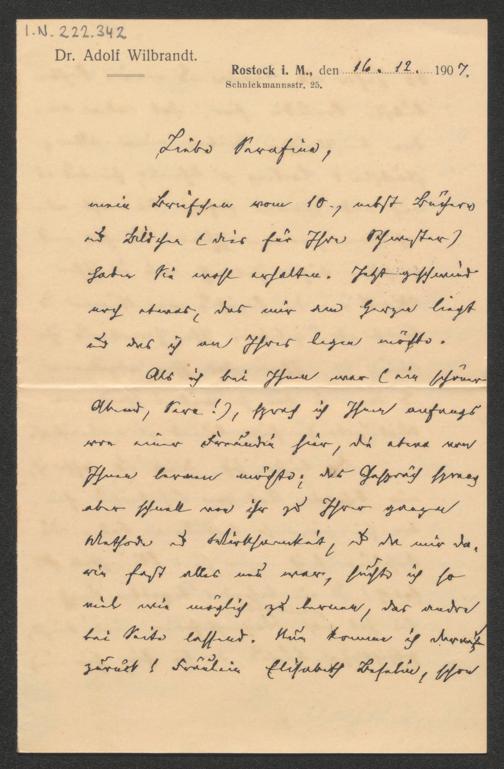 I.N. 222.342
Dr. Adolf Wilbrandt.
Rostock i. M., den 16. 12. 1907.
Schnickmannsstr. 25.
Liebe Serafine,
mein Briefchen vom 10., nebst Büchern
und Bildchen (dies für Ihre Schwester)
haben Sie wohl erhalten. Jetzt geschwind
noch etwas, das mir am Herzen liegt
und das ich an Ihres legen möchte.
Als ich bei Ihnen war (ein schöner
Abend, Sera!), sprach ich Ihnen anfangs
von einer Freundin hier, die etwas von
Ihnen lernen möchte; das Gespräch sprang
aber schnell von ihr zu Ihrer ganzen
Methode und Wirksamkeit, und da mir da-
rin fast alles neu war, suchte ich so
viel wie möglich zu lernen, das andre
bei Seite lassend. Nun komme ich darauf
zurück! Fräulein Elisabeth, schon